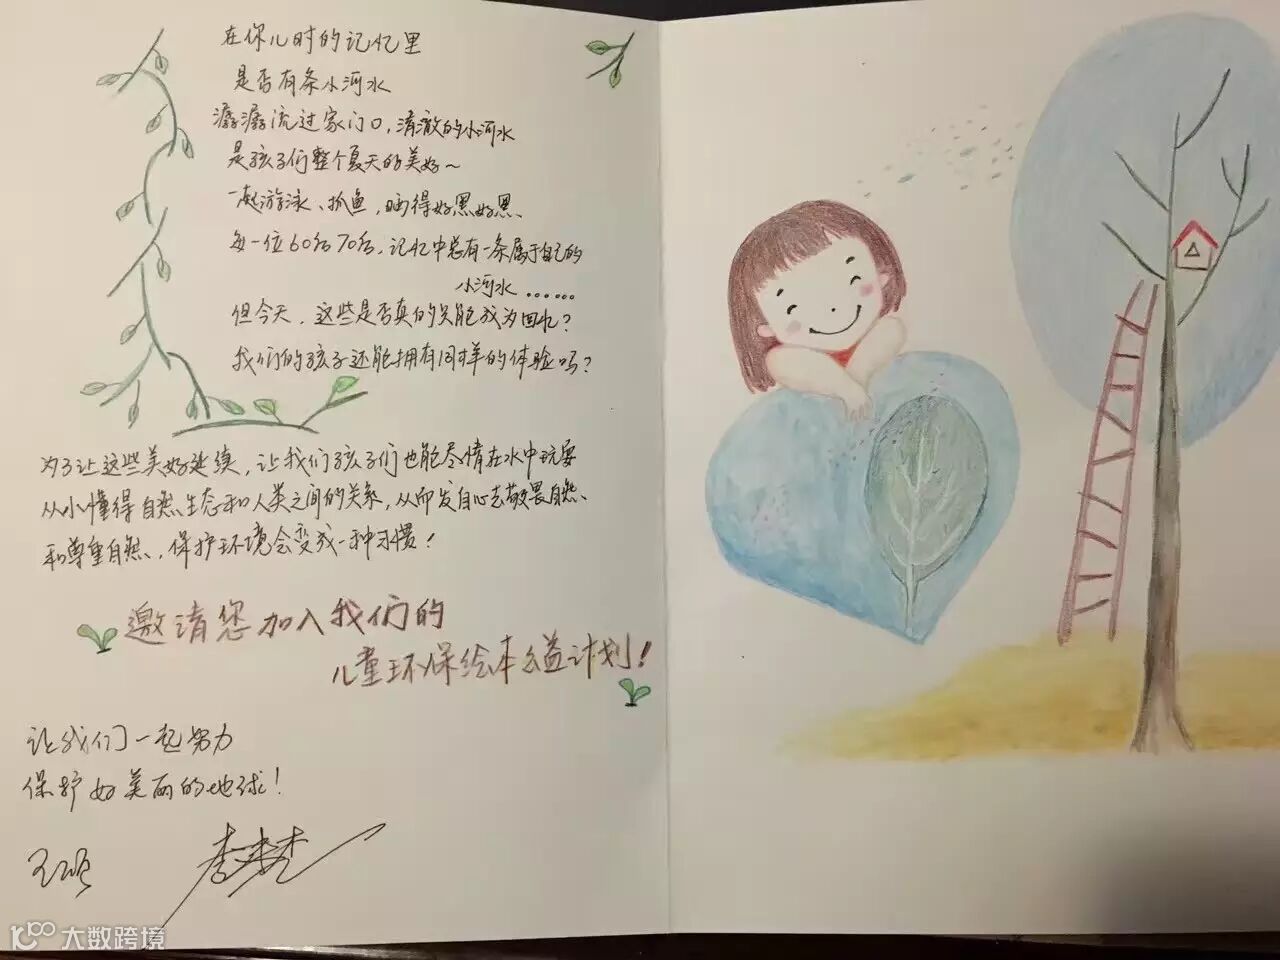 在你儿时的记忆里
是否有条小河水
潺潺流过家门口,清澈的小河水
是孩子们整个夏天的美好~
一起游泳、抓鱼,晒得好黑好黑
每一位60后70后,记忆中总有一条属于自己的
小河水……
但今天,这些是否真的只能成为回忆?
我们的孩子还能拥有同样的体验吗?
为了让这些美好延续,让我们孩子们也能尽情在水中玩耍
从小懂得自然生态和人类之间的关系,从而发自心去敬畏自然、
和尊重自然,保护环境会变成一种习惯!
邀请您加入我们的
儿童环保绘本公益计划!
让我们一起努力
保护好美丽的地球!
大数跨境